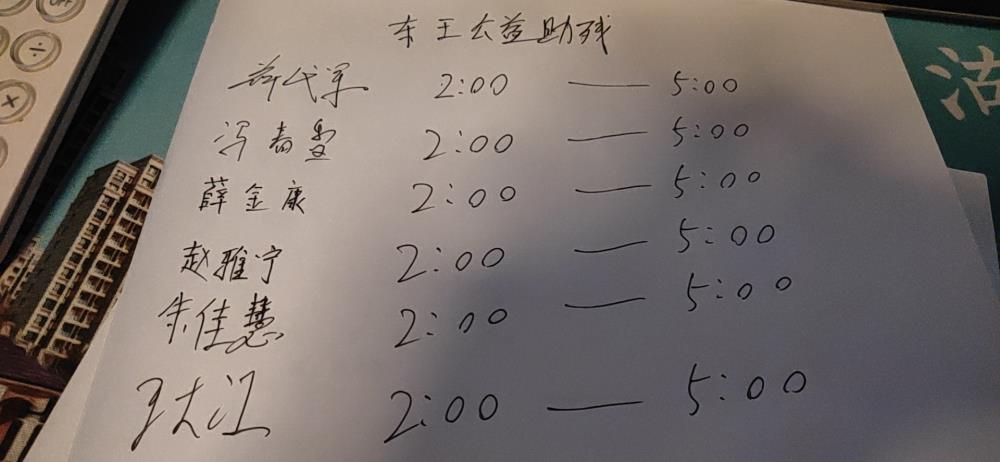 东王公益助残
代军 2:00 — 5:00
冯春 2:00 — 5:00
薛金康 2:00 — 5:00
赵雅宁 2:00 — 5:00
朱佳慧 2:00 — 5:00
王大江 2:00 — 5:00
沽
OFF
÷
×